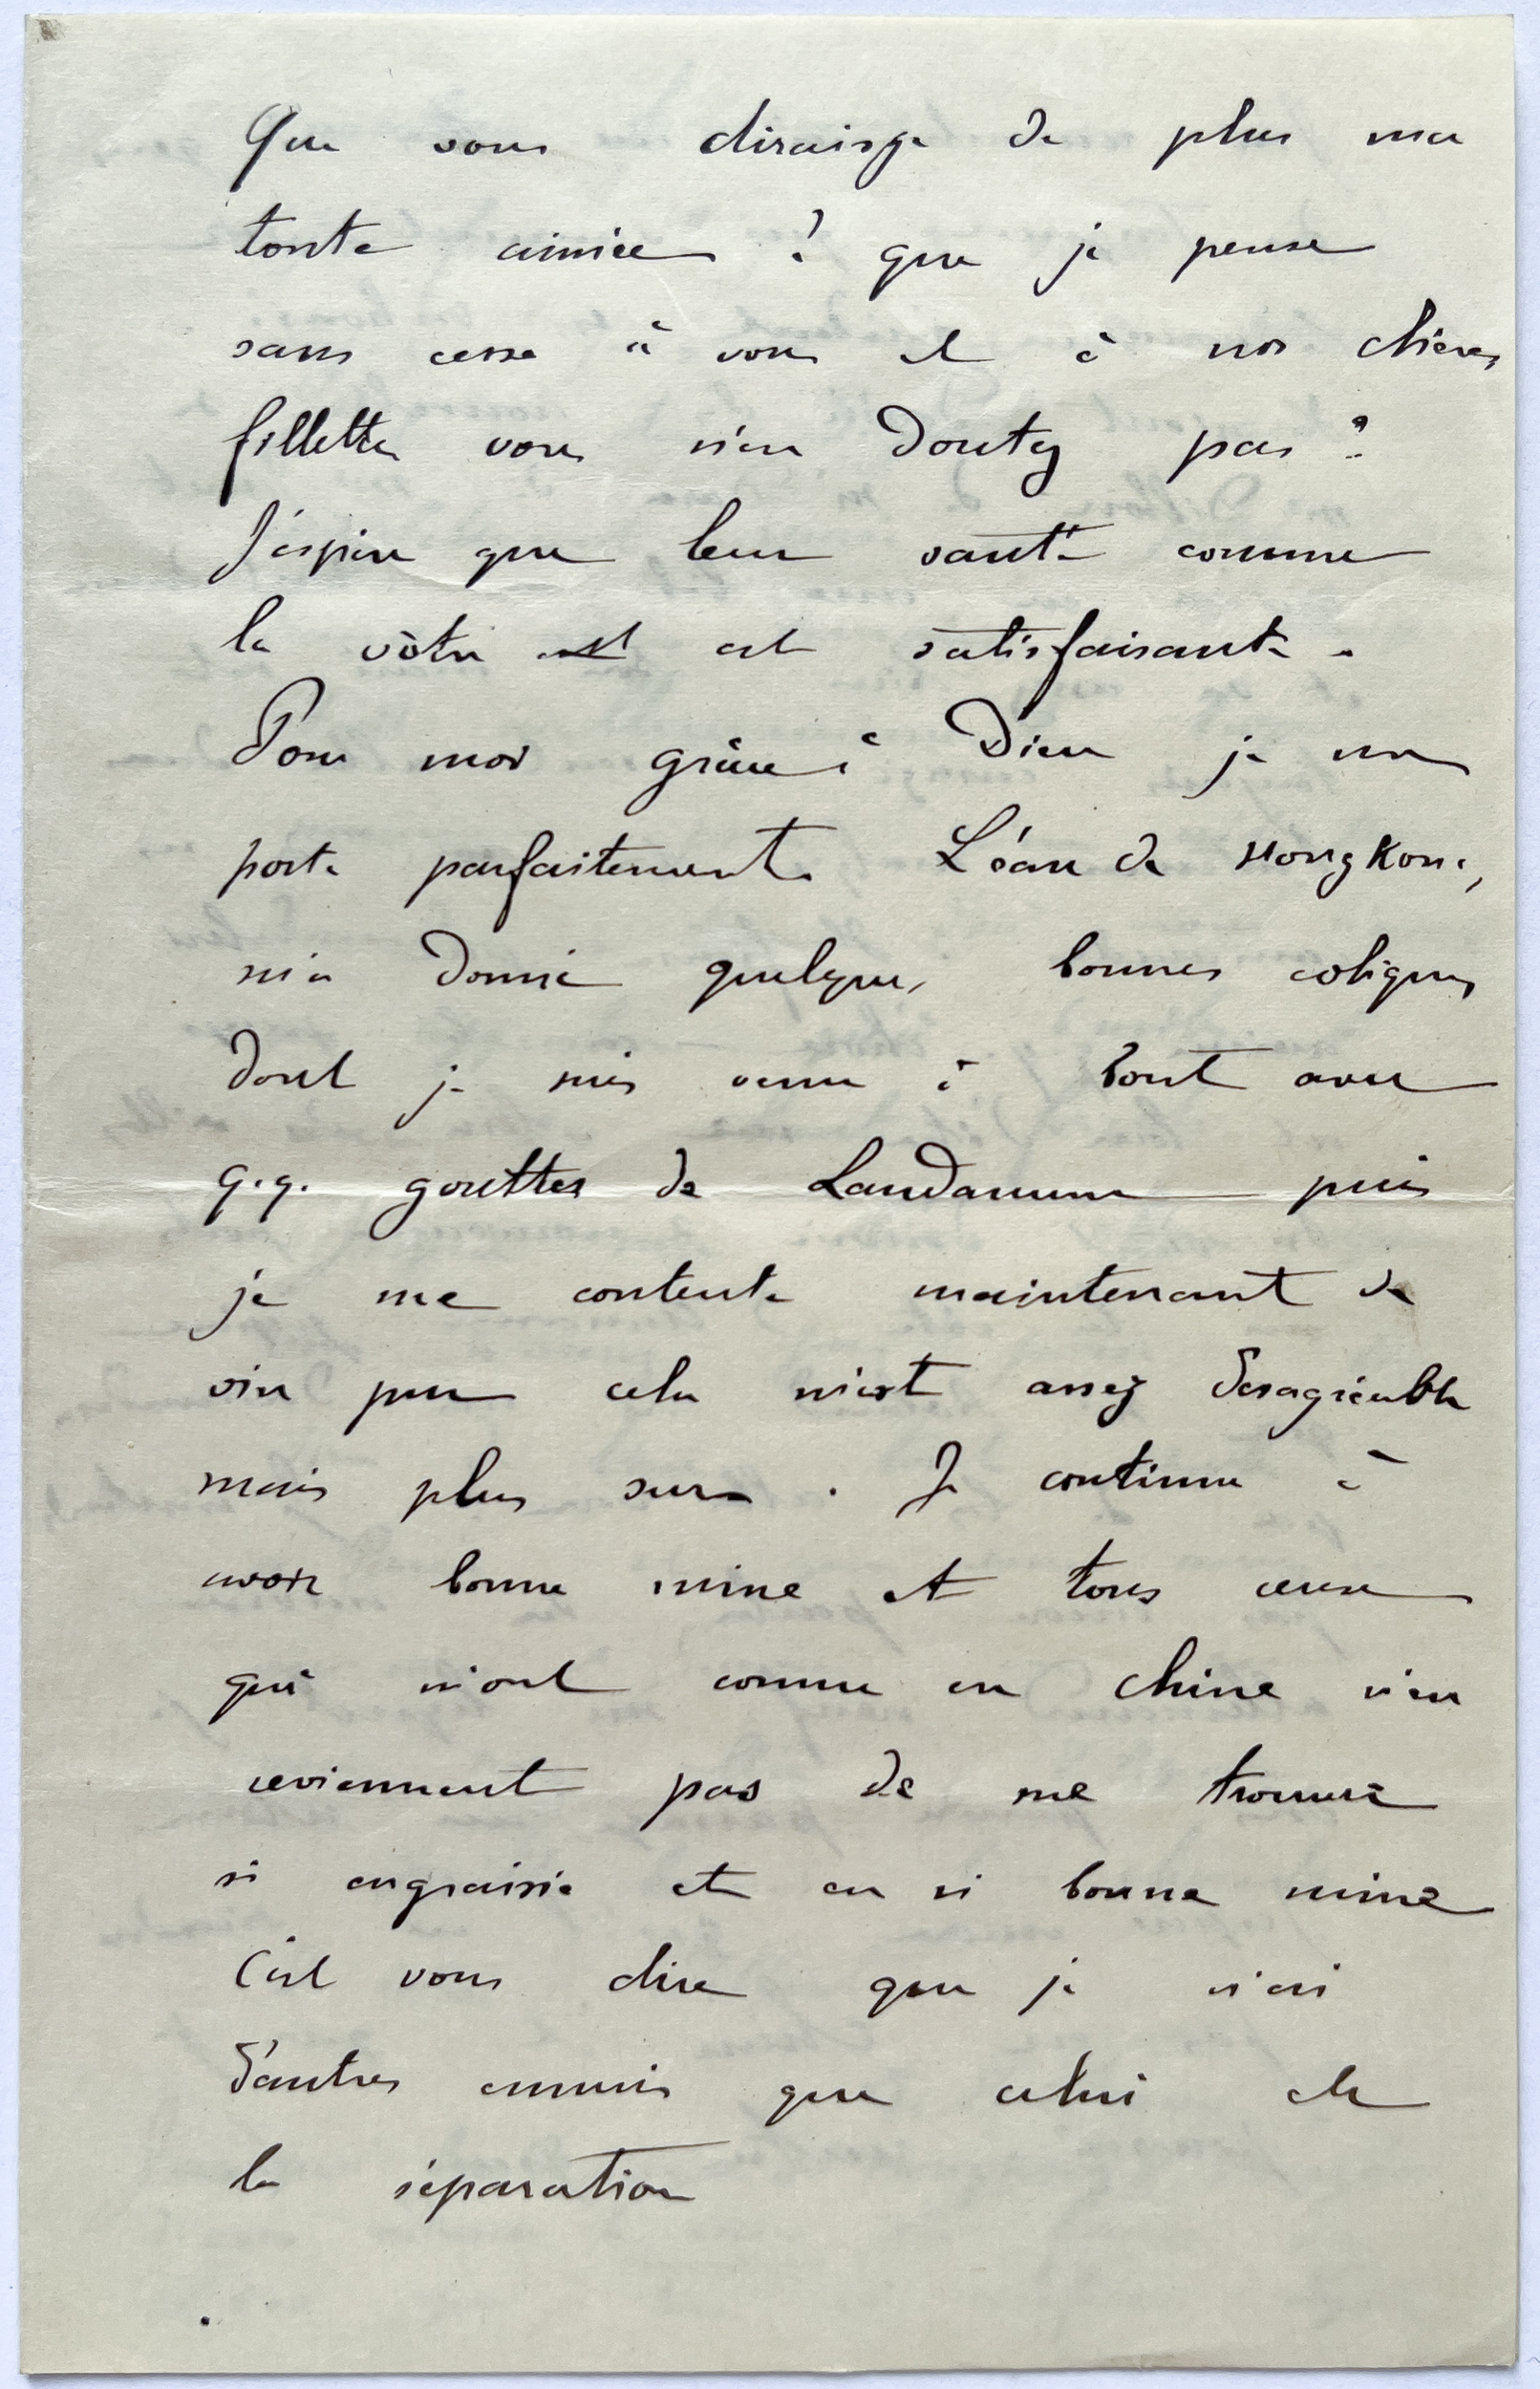 Que vous diraisje de plus ma
toute aimée ? que je pense
sans cesse à vous et à nos chères
fillettes vous n'en doutez pas ?
J'espère que leur santé comme
la vôtre est est satisfaisante.
Pour moi grâce à Dieu je me
porte parfaitement. L'eau de Hong Kong,
m'a donné quelques bonnes coliques
dont je suis venu à bout avec
q.q. gouttes de Laudanum puis
je me contente maintenant de
vin pur cela m'est assez desagréable
mais plus sur. Je continue à
avoir bonne mine et tous ceux
qui m'ont connu en Chine n'en
reviennent pas de me trouver
si engraissé et en si bonne mine
C'est vous dire que je n'ai
d'autres ennuis que celui de
la séparation